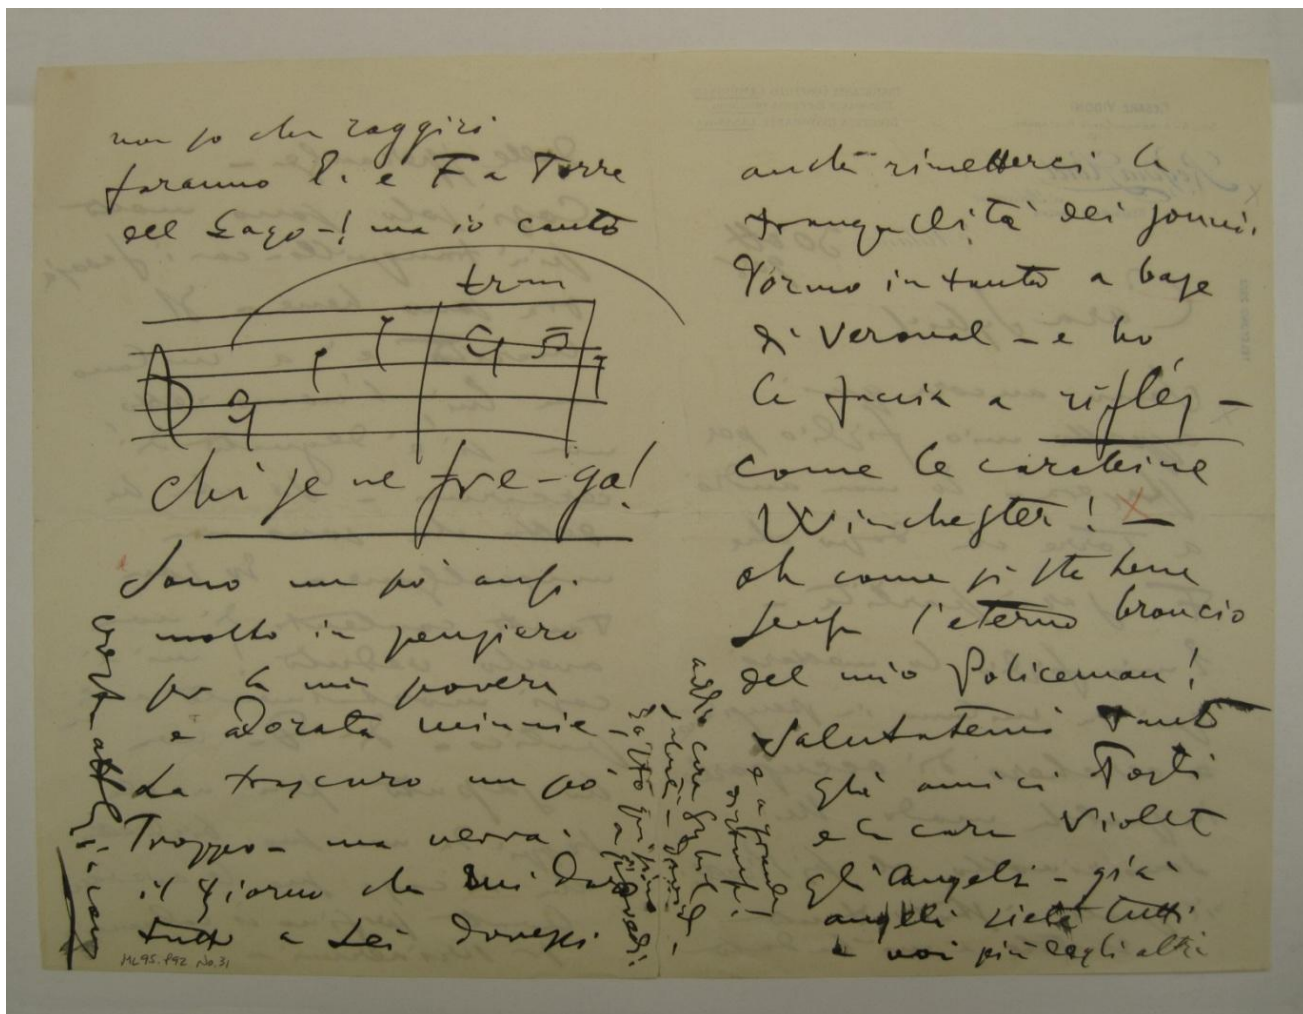 non so che raggiri
faranno lì e F a Torre
del Lago-! ma io canto
trm
chi se ne fre-ga!
Sono un pò anzi
molto in pensiero
per la mia povera
e adorata minnie -
La trascuro un pò
Troppo - ma verrà
il giorno che mi darò
tutto a Lei dovessi
anche rimetterci la
tranquillità dei sonni.
Dormo intanto a base
di Veronal - e ho
la faccia a riflés -
come le carabine
Winchester! -
oh come si sta bene
senza l'eterno broncio
del mio Policeman!
Salutatemi tanto
gli amici Tosti
e la cara Violet
gli Angeli - già
angeli siete tutti
e voi più degli altri
addio cara Sybil
saluti
e a
ML95.P92 No.31